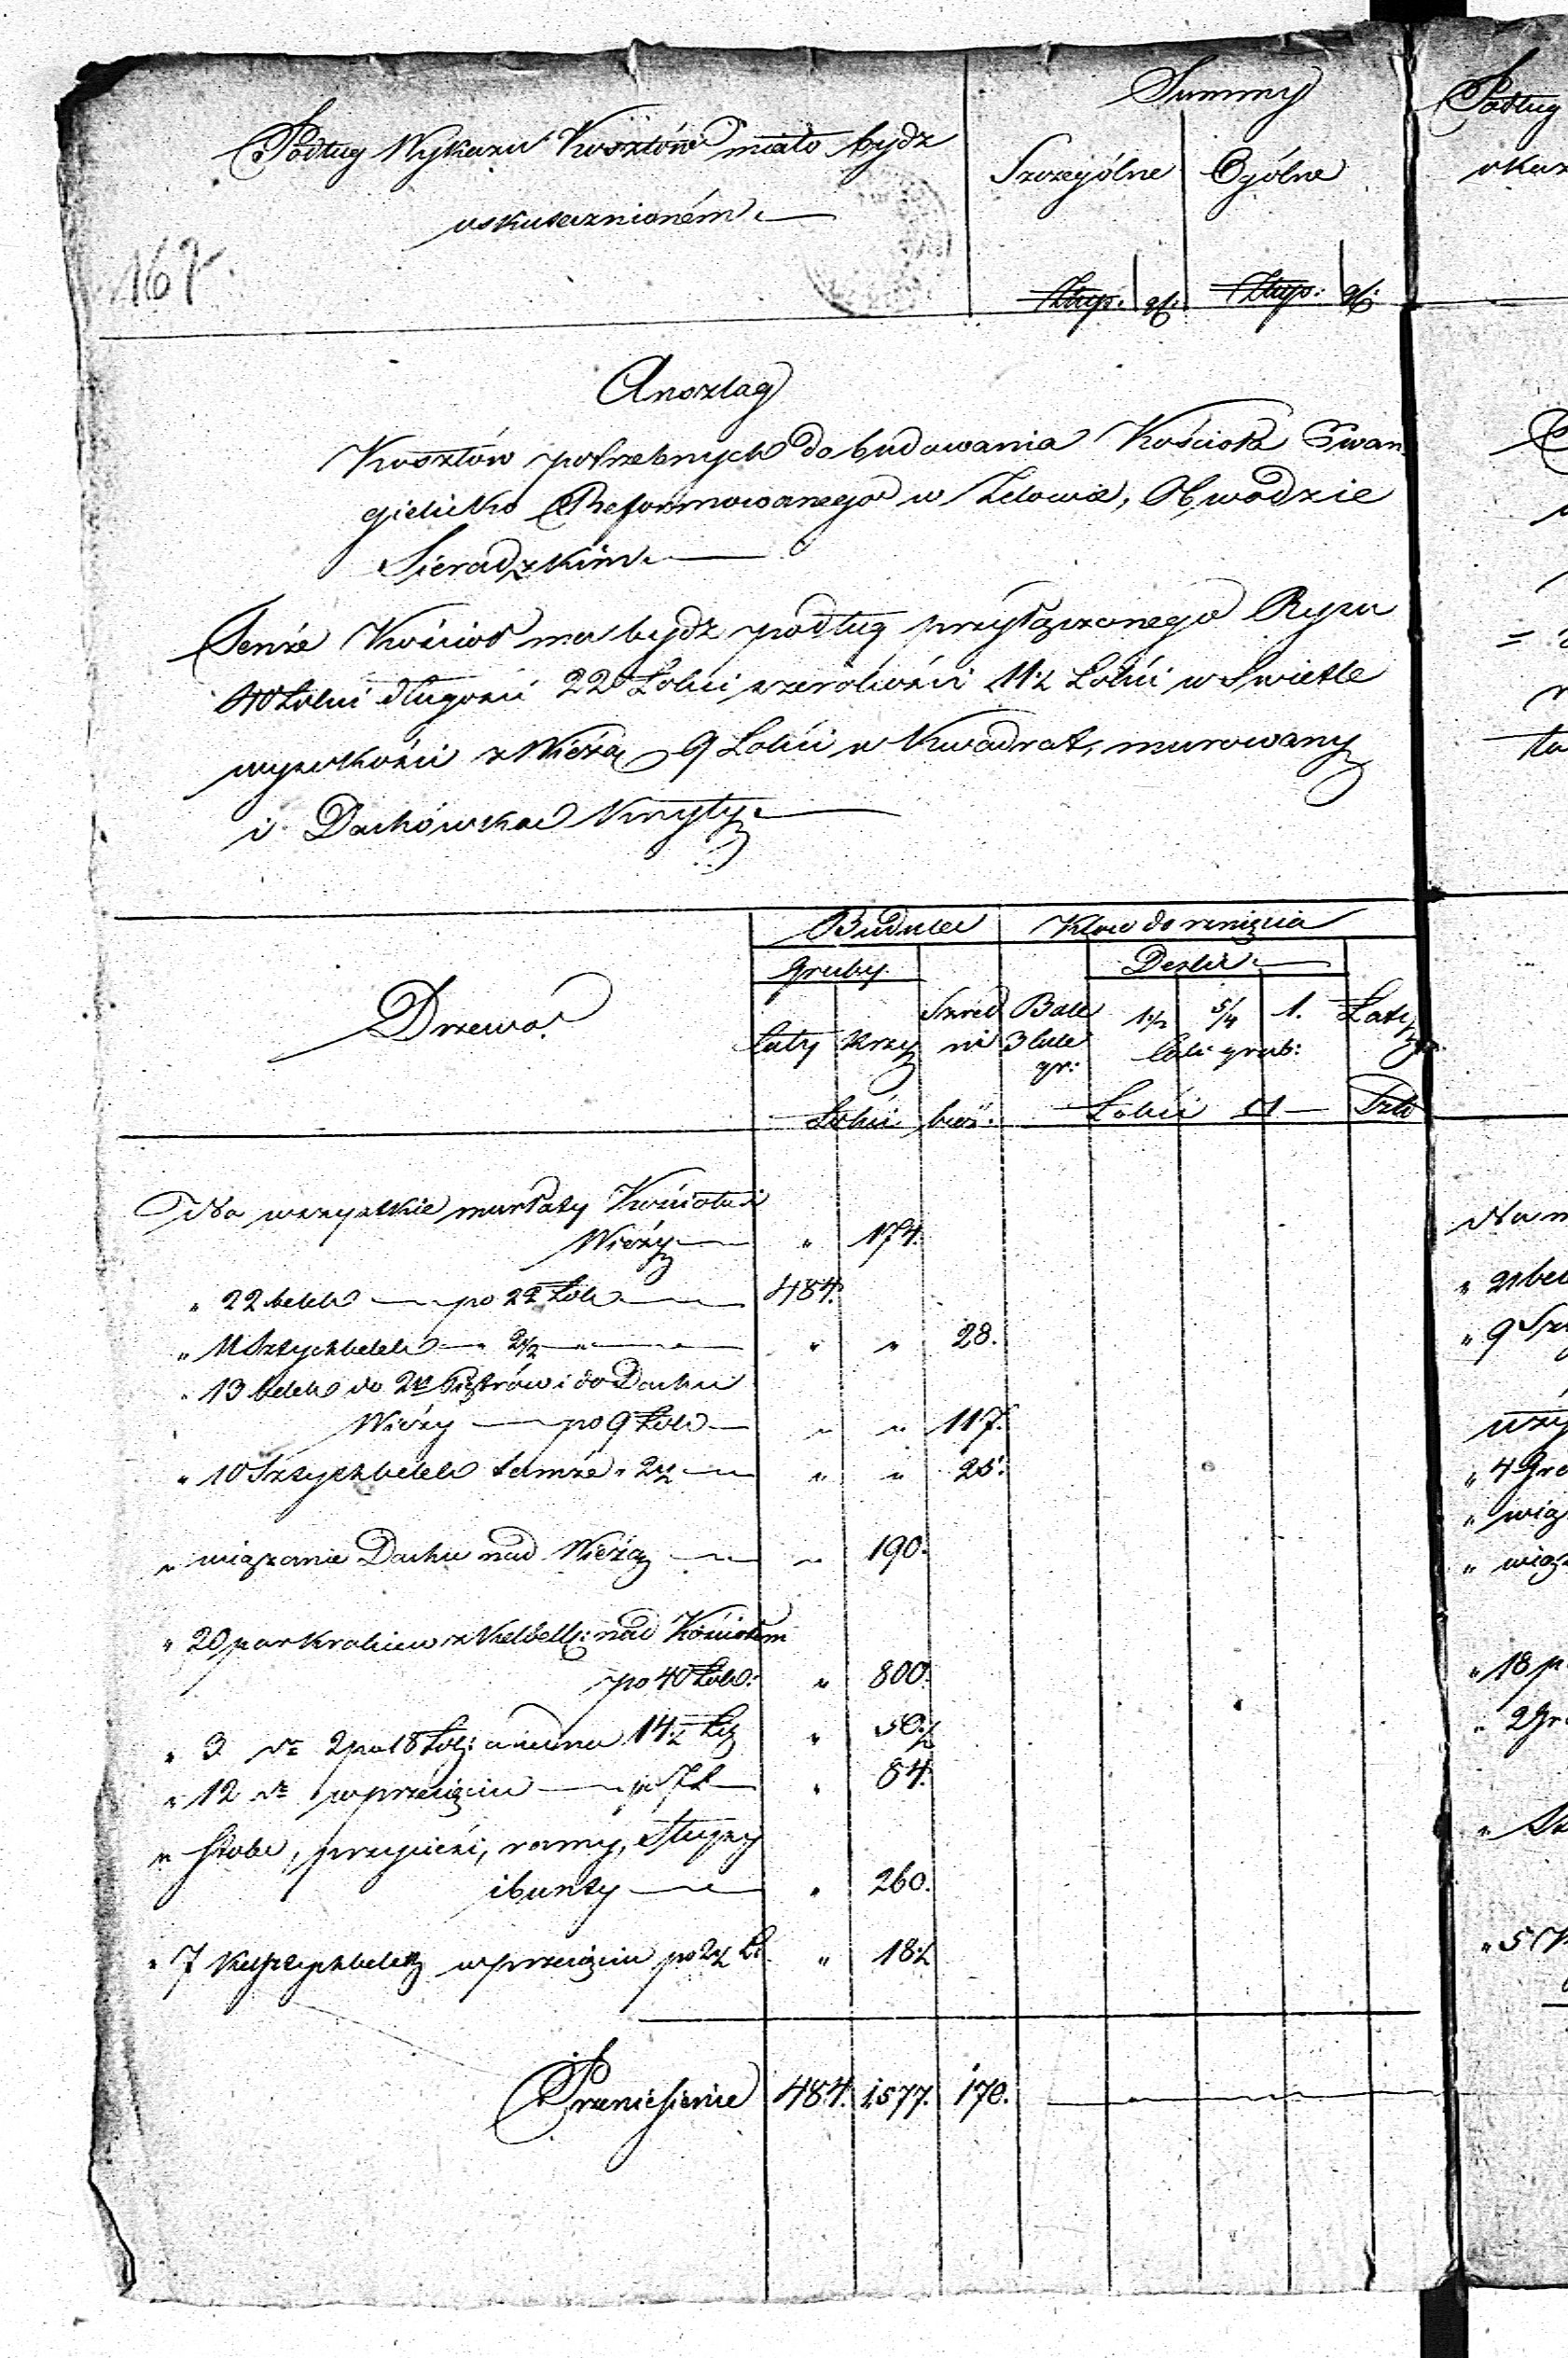 Podług Wykazu Kosztów miało bydz
uskutecznioném.
Summy
Szczególne Ogólne
Złlup. gr. Złlup: gr.
167.
Anszlag
Kosztów potrzebnych do budowania Kościoła Ewan
gielicko Reformowanego w Zelowie, Obwodzie
Sieradzkim.
Tenże Kościoł ma bydz podług przyłączonego Rysu
40 Łokci długości 22 Łokci szerokości 11½ Łokci w Swietle
wysokości z Wieżą 9 Łokci w Kwadrat, murowany
i Dachówką kryty.
Drzewo.
Budulec Kloce do rznięcia
Gruby Deski
Szred Bale 1½ 5/4 1. Łaty
caly krzy ni 3 cale cali grub:
gr:
Łokci bież. Łokci □ Sztk
Na wszystkie murłaty Kościoła i
Wieży " 174.
" 22 belek po 22 Łok 484.
" 11 Sztychbelek " 2½ " " " 28.
" 13 belek do 2ch Piętrów i do Dachu
Wieży po 9 Łok " " 117.
" 10 Sztychbelek tamże " 2½ " " 25.
" wiązanie Dachu nad Wieżą " 190.
" 20 par Krokiew z Kelbelk: nad Kościołem
po 40 Łok: " 800.
" 3 dto 2 po 18 Łok: a jedna 14½ Łk " 50½
" 12 dto w przecięciu po 7 Ł " 84.
" Stolce, przycieśi, ramy, Słupy
i bunty " 260.
" 7 sztychbelek w przecięciu po 2½ Ł. " 18½
Przeniesienie 484. 1577. 170.
Podług